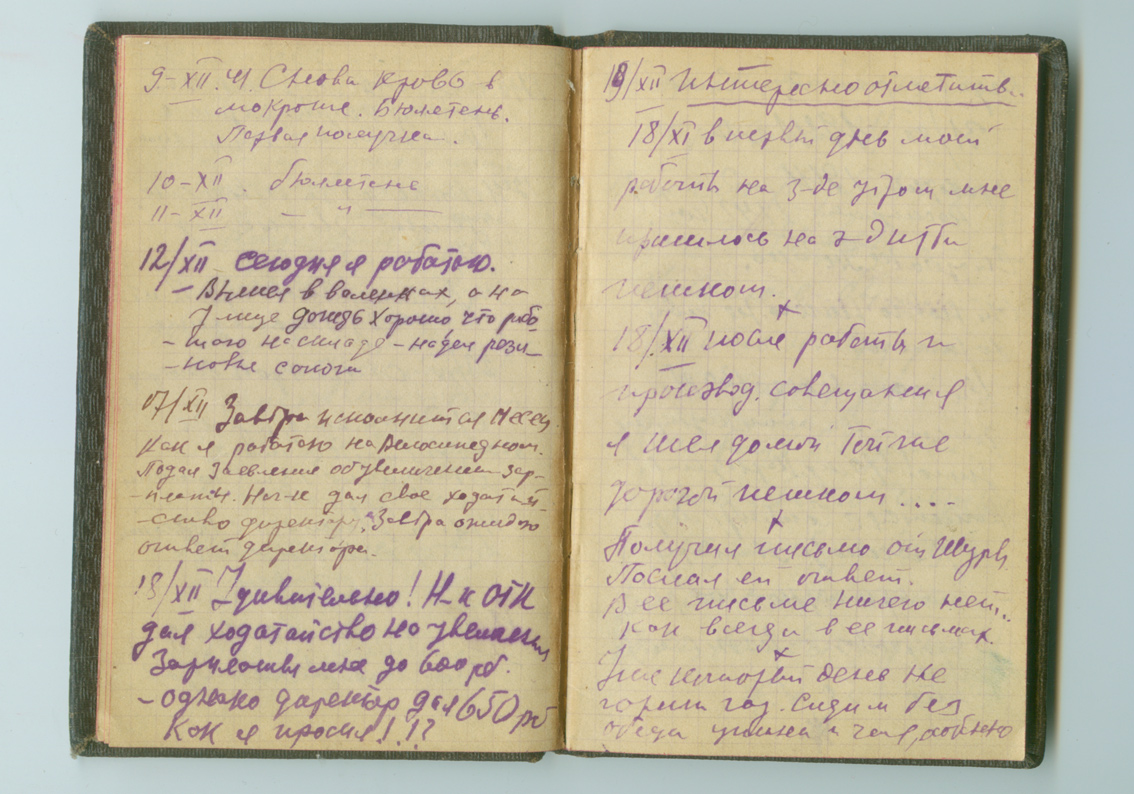 9-XII. 41. Снова кровь в
мокроте. Бюллетень.
Первая получка.
10-XII. бюллетень
11-XII — " —
12/XII сегодня я работаю.
- Вышел в валенках, а на
улице дождь хорошо, что рабо-
-таю на складе - надел рези-
-новые сапоги
17/XII Завтра исполнится месяц
как я работаю на Велосипедном.
Подал заявление об увеличении зар-
-платы. Нач-к дал свое ходатай-
-ство директору. Завтра ожидаю
ответ директора.
18/XII Удивительно! Н-к ОТК
дал ходатайство на увеличен
Зарплаты мне до 600 рб.
- однако директор дал 650 рб
как я просил!!?
18/XII Интересно отметить.
18/XI в первый день моей
работы на з-де утром мне
пришлось на з-д идти
пешком.
х
18/XII после работы и
производ. совещания
я шел домой той же
дорогой пешком ....
х
Получил письмо от Шуры
Послал ей ответ.
В ее письме ничего нет..
как всегда в ее письмах.
х
Уже который день не
горит газ. Сидим без
обеда ужина и чая,